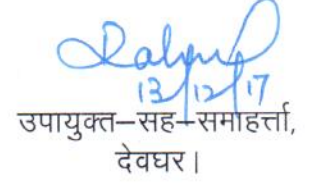 13/12/17
उपायुक्त–सह–समाहर्त्ता,
देवघर।